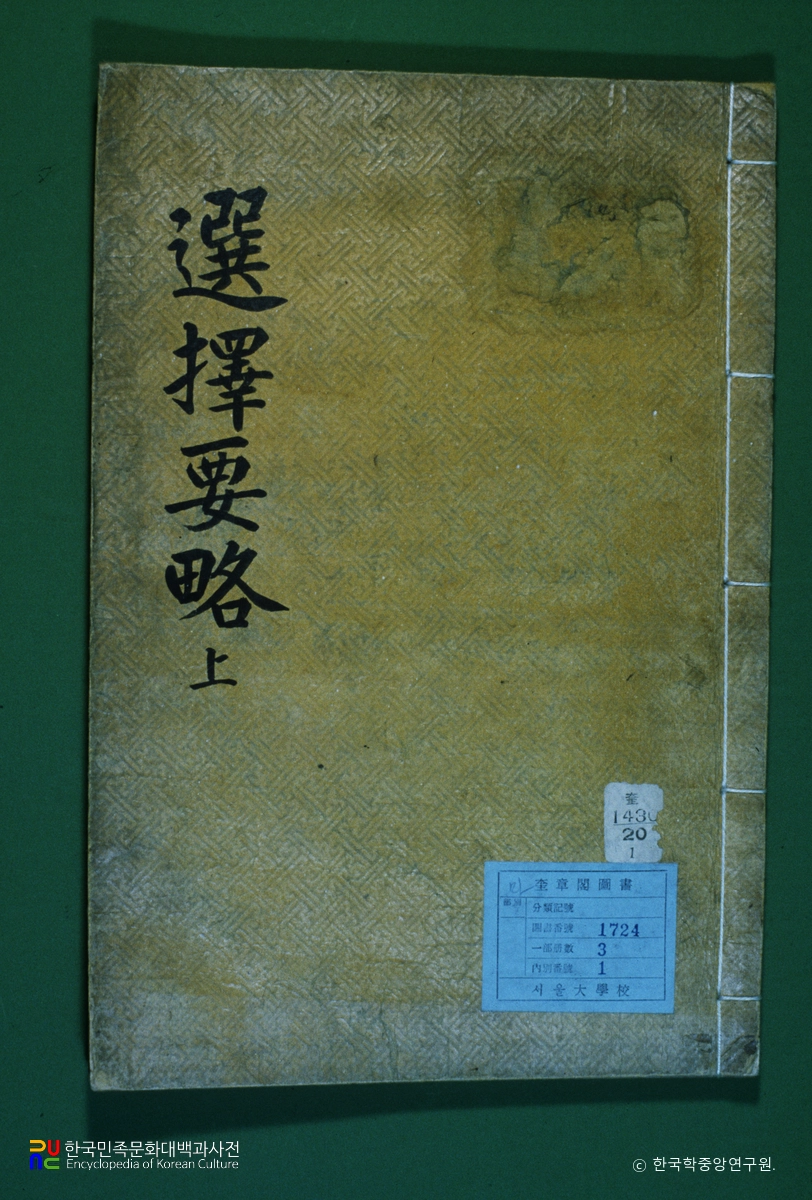 選擇要略上
奎
1430
20
1
奎章閣圖書
分類記號
圖書番號 1724
一部冊數 3
內別番號 1
서울大學校
한국민족문화대백과사전
Encyclopedia of Korean Culture
© 한국학중앙연구원.